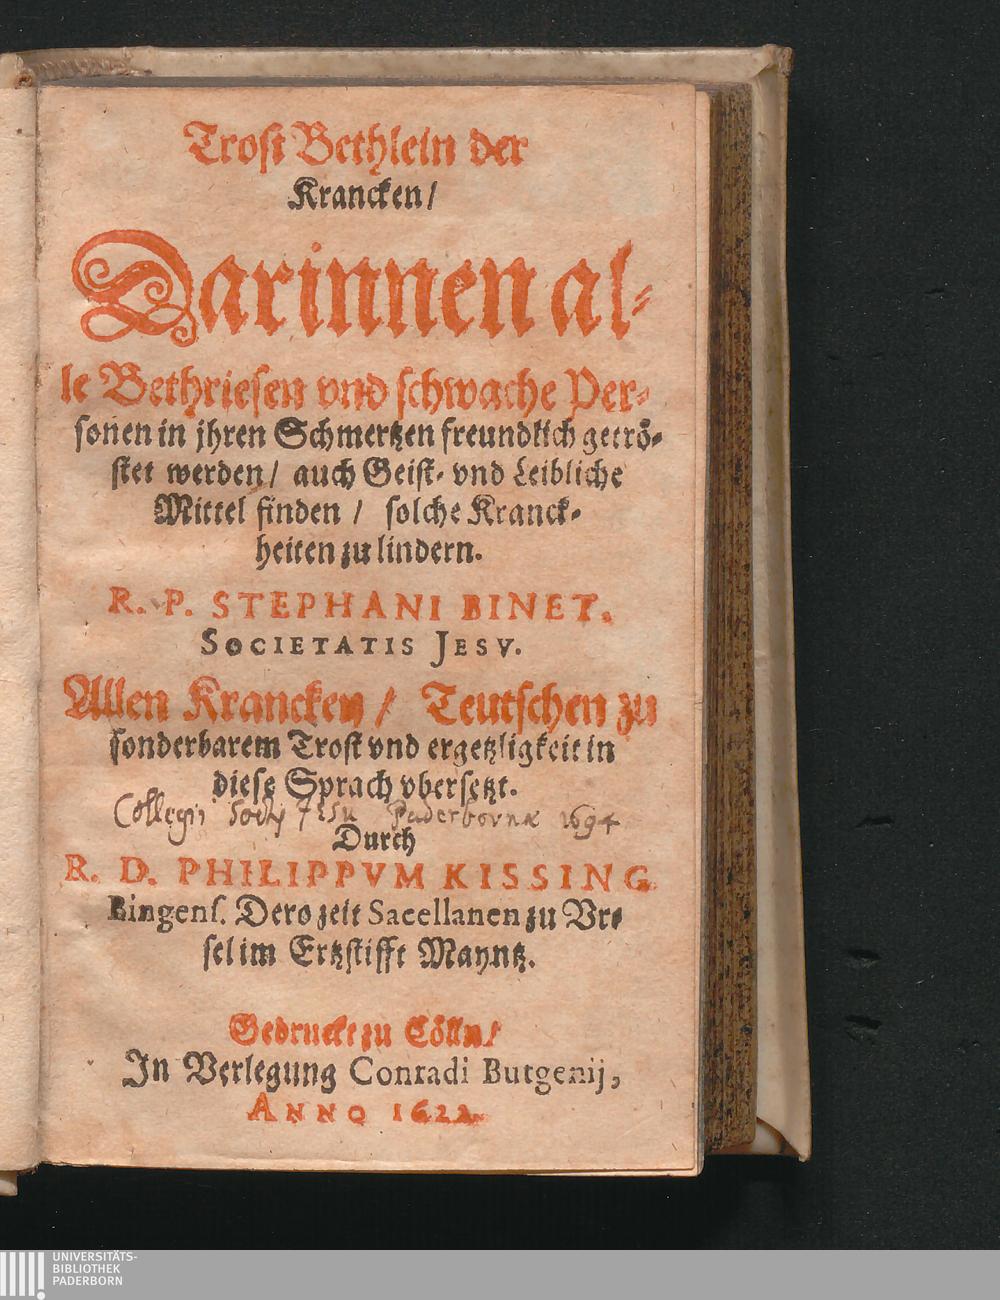 Trost Bethlein der
Krancken/
Darinnen al-
le Bethriesen vnd schwache Per-
sonen in jhren Schmertzen freundlich getrö-
stet werden/ auch Geist- vnd Leibliche
Mittel finden/ solche Kranck-
heiten zu lindern.
R. P. STEPHANI BINET.
SOCIETATIS JESV.
Allen Krancken/ Teutschen zu
sonderbarem Trost vnd ergetzligkeit in
diese Sprach vbersetzt.
Collegij Socty Jesu Paderbornæ 1694
Durch
R. D. PHILIPPVM KISSING
Bingens. Dero zeit Sacellanen zu Vr-
sel im Ertzstifft Mayntz.
Gedruckt zu Cölln/
In Verlegung Conradi Butgenij,
ANNO 1622.
UNIVERSITÄTS-
BIBLIOTHEK
PADERBORN